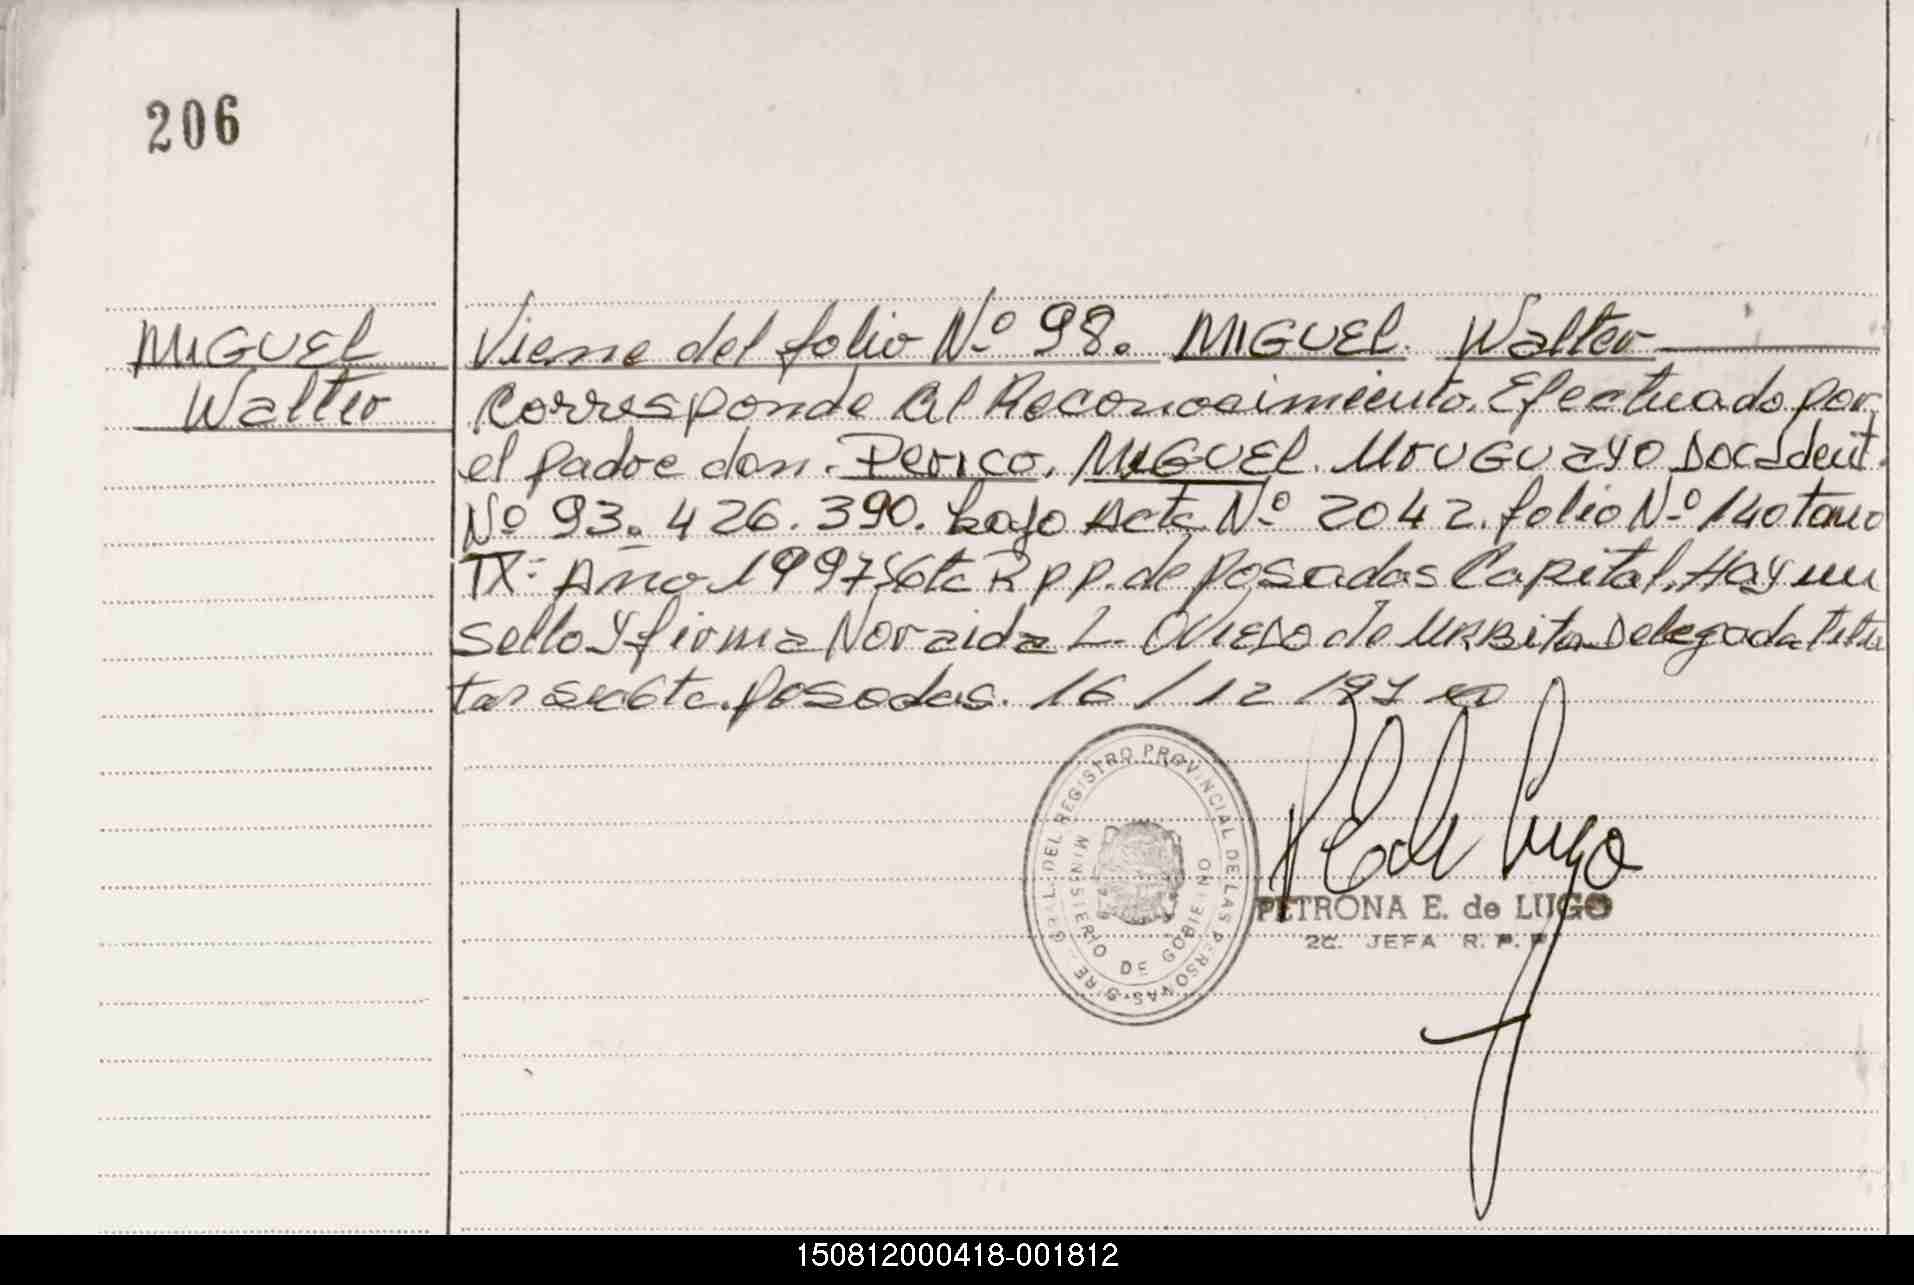 206
MIGUEL
Walter
Viene del folio Nº 98. MIGUEL. Walter
Corresponde Al Reconocimiento. Efectuado por
el padre don. Perico. MIGUEL. Uruguayo Doc Ident.
Nº 93.426.390. bajo Acta Nº 2042. folio Nº 140 tomo
IX: Año 1997 Secta R p p. de posadas Capital. Hay un
Sello y firma Noraida L. Oviedo de Urbita Delegada Titu
lar posadas. 16/12/97
GRAL. DEL REGISTRO PROVINCIAL DE LAS PERSONAS
MINISTERIO DE GOBIERNO
PETRONA E. de LUGO
2C. JEFA R. P. P.
150812000418-001812